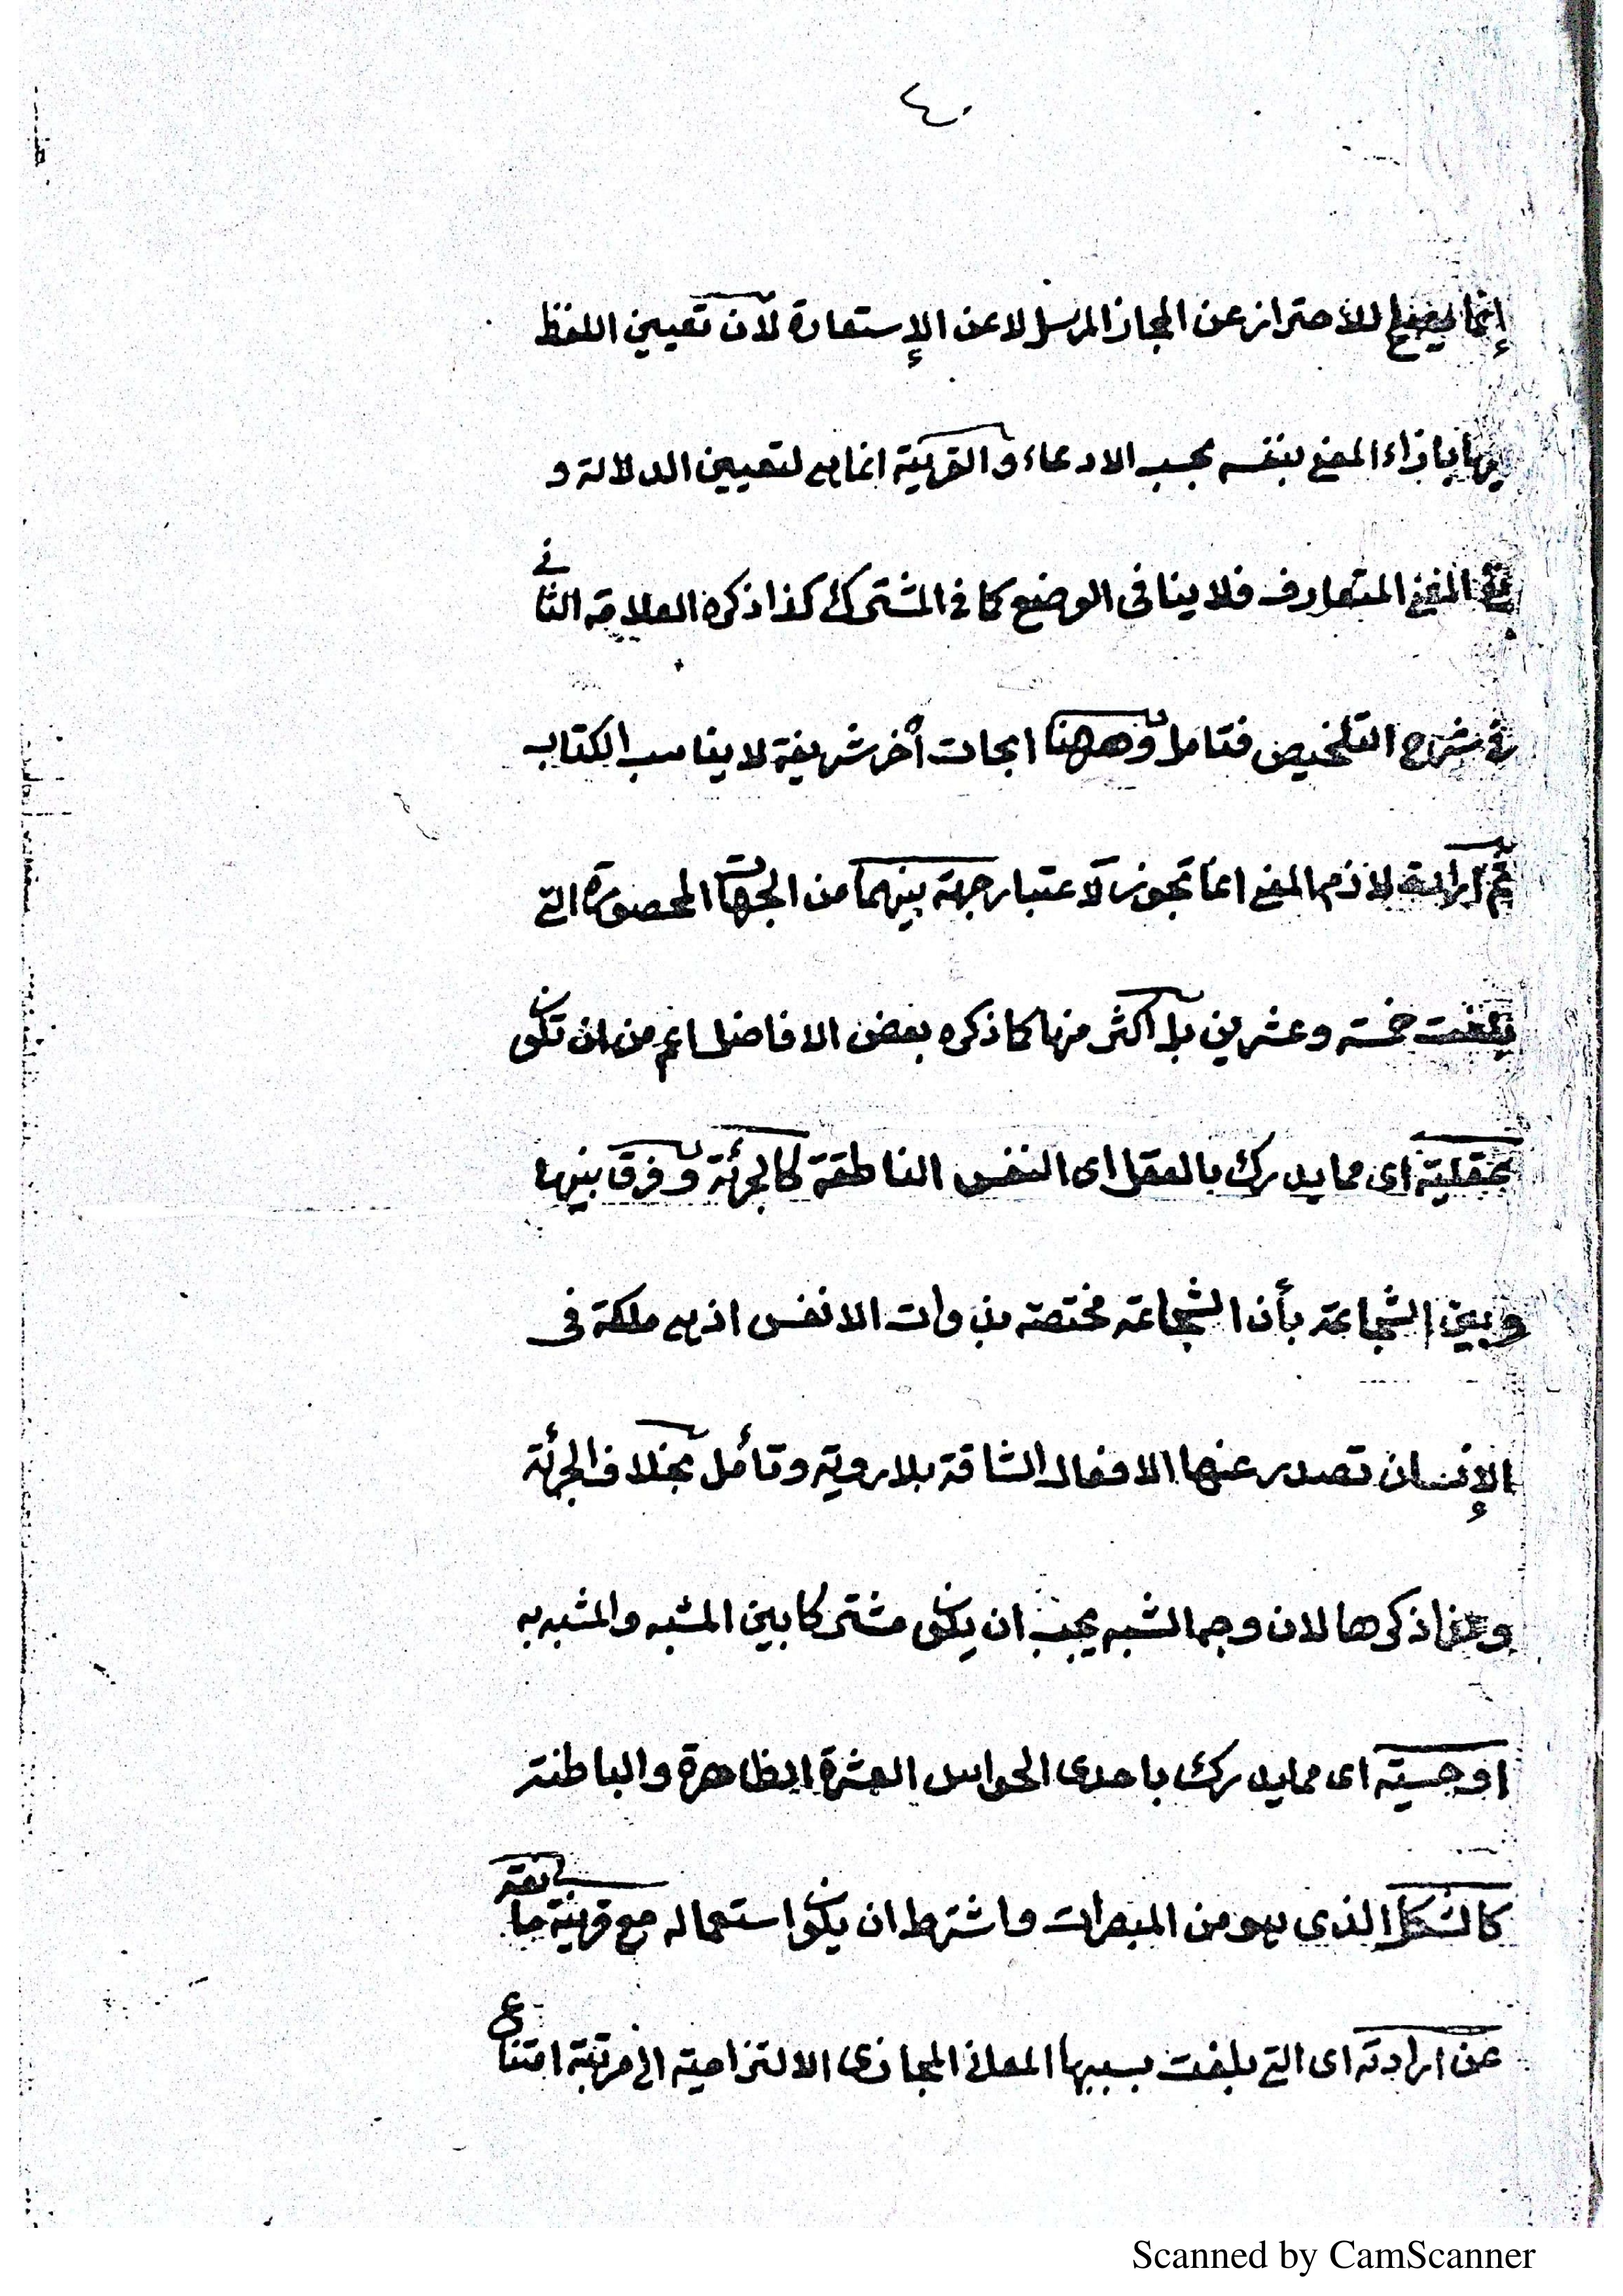 ٤٠
إنما يصلح للاحتراز عن المجاز المرسل لا عن الإستعارة لان تعيين اللفظ
بازاء المعنى بنفسه بحسب الادعاء والقرينة انما هى لتعيين الدلالة و
المعنى المتعارف فلا ينافى الوضع كما فى المشترك كذا ذكره العلامة الثانى
فى شرح التلخيص فتامل وههنا ابحاث أخر شريفة لا يناسب الكتاب
ثم ارادة لازم المعنى انما تجوز لاعتبار جهة بينهما من الجهات المحصورة التى
بلغت خمسة وعشرين بل اكثر منها كما ذكره بعض الافاضل اعم من ان تكون
عقلية اى مما يدرك بالعقل اى النفس الناطقة كالجرئة وفرق بينها
وبين الشجاعة بأن الشجاعة مختصة بذوات الانفس اذ هى ملكة فى
الإنسان تصدر عنها الافعال الشاقة بلا روية وتأمل بخلاف الجرئة
ولذا ذكرها لان وجه الشبه يجب ان يكون مشتركا بين المشبه والمشبه به
او حسية اى مما يدرك باحدى الحواس العشرة الظاهرة والباطنة
كالشكل الذى هو من المبصرات واشترط ان يكون استعماله مع قرينة مانعة
عن ارادته اى التى بلغت بسببها المعانى المجازى الالتزامية الى مرتبة امتناع
Scanned by CamScanner